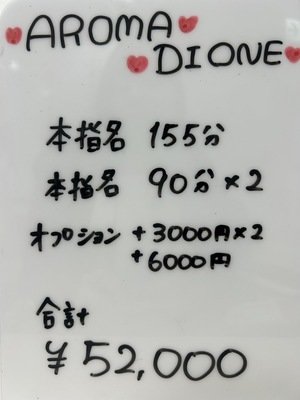 AROMA
DIONE
本指名 155分
本指名 90分×2
オプション +3000円×2
+6000円
合計
¥52,000